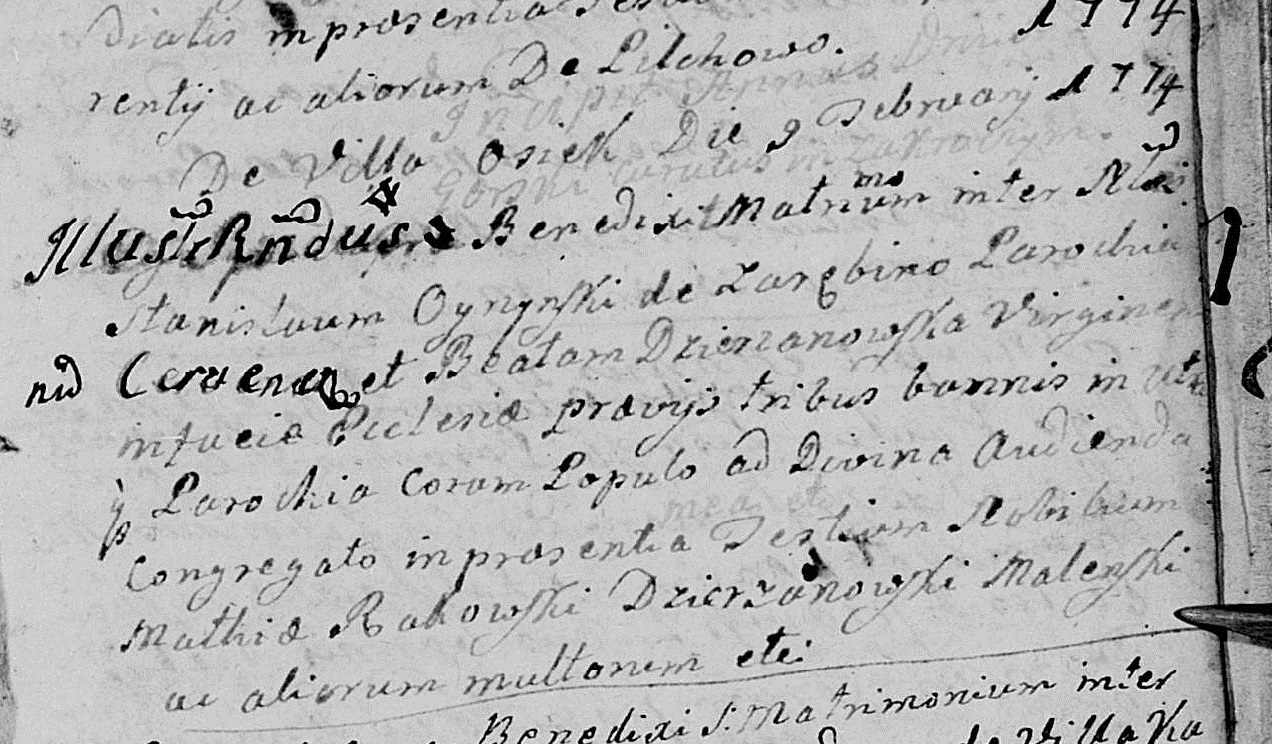 dialis in præsentia
1774
rentij ac aliorum De Pilchowo.
De Villa Osiek Die 9 February 1774
Illustr Rndus Benedixi Matrium mo inter Nles
Stanislaum Ogynski de Zarębino Parochia
Cervena et Beatam Dzierzanowska Virginem
infacie Ecclesiæ prævijs tribus bannis in utra
q Parochia Coram Populo ad Divina Audienda
Congregato in præsentia Testium Nobilium
Mathiæ Rakowski Dzierzanowski Malenski
ac aliorum multorum etc:
Benedixi S. Matrimonium inter
de Villa Ka